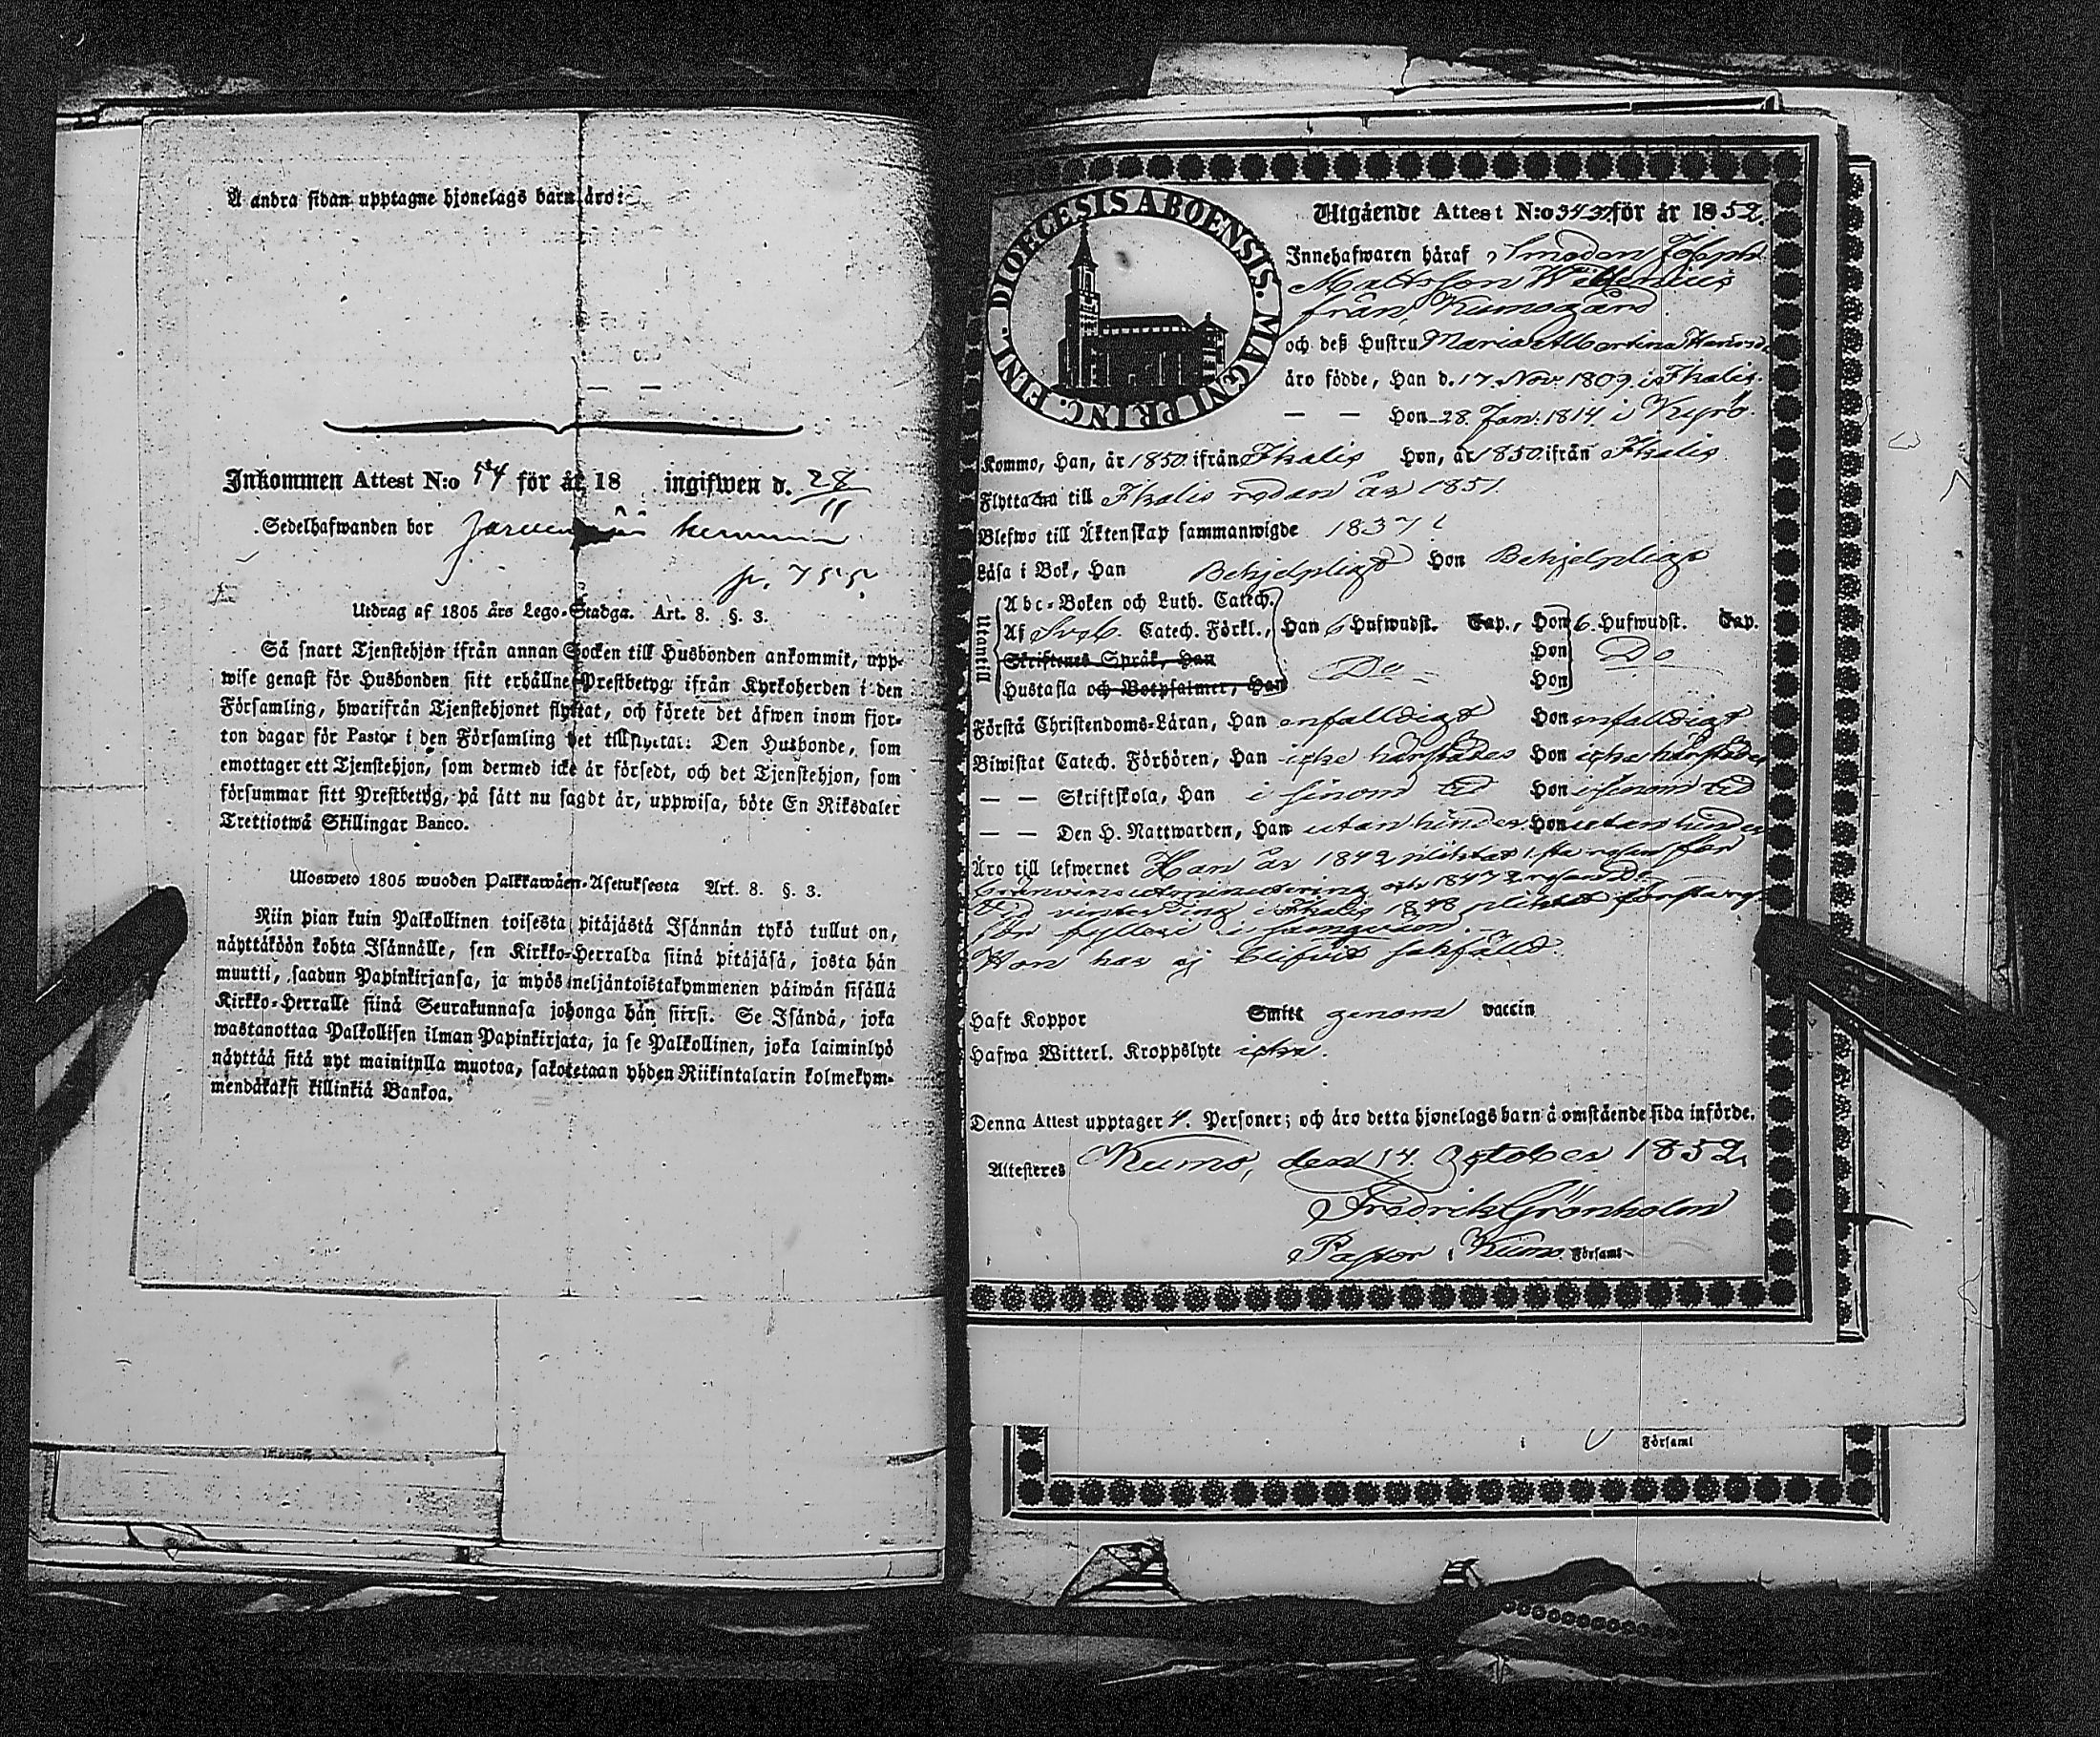 Å andra sidan upptagne hjonelags barn äro:
Inkommen Attest N:o 54 för år 18 ingifwen d. 28/11
Sedelhafwanden bor
Utdrag af 1805 års Lego-Stadga. Art. 8. §. 3.
Så snart Tjenstehjon ifrån annan Socken till Husbonden ankommit, upp-
wise genast för Husbonden sitt erhållne Prestbetyg ifrån Kyrkoherden i den
Församling, hwarifrån Tjenstehjonet flyttat, och förete det äfwen inom fjor-
ton dagar för Pastor i den Församling det tillflyttat: Den Husbonde, som
emottager ett Tjenstehjon, som dermed icke är försedt, och det Tjenstehjon, som
försummar sitt Prestbetyg, på sätt nu sagdt är, uppwisa, böte En Riksdaler
Trettiotwå Skillingar Banco.
Ulosweto 1805 wuoden Palkkawäen-Asetuksesta Art. 8. §. 3.
Niin pian kuin Palkollinen toisesta pitäjästä Isännän tykö tullut on,
näyttäköön kohta Isännälle, sen Kirkko-Herralda siinä pitäjäsä, josta hän
muutti, saadun Papinkirjansa, ja myös neljäntoistakymmenen päiwän sisällä
Kirkko-Herralle siinä Seurakunnasa johonga hän siirsi. Se Isändä, joka
wastanottaa Palkollisen ilman Papinkirjata, ja se Palkollinen, joka laiminlyö
näyttää sitä nyt mainitulla muotoa, sakotetaan yhden Riikintalarin kolmekym-
mendäkaksi killinkiä Bankoa.
DIOECESIS ABOENSIS. MAGNI PRINC. FINL.
Utgående Attest N:o för år 1852.
Innehafwaren häraf, Smeden Joseph
Mattsson
från Kumogård
och deß Hustru Maria Albertina
äro födde, Han d. 17 Nov. 1809. i Ikalis.
— — Hon 28. Jan. 1814. i Kyro.
Kommo, Han, år 1850 ifrån Ikalis Hon, år 1850 ifrån Ikalis.
Flytta nu till Ikalis redan år 1851.
Blefwo till Äktenskap sammanwigde 1837
Läsa i Bok, Han Behjelpligt Hon Behjelpligt
Utantill
Abc-Boken och Luth. Catech.
Af Sveb. Catech. Förkl., Han 6 Hufwudst. Cap., Hon 6. Hufwudst. Cap.
Skriftenes Språk, Han Do Hon Do
Hustafla och Botpsalmer, Han Hon
Förstå Christendoms-Läran, Han enfalldigt Hon enfalldigt
Biwistat Catech. Förhören, Han icke härstädes Hon icke härstädes
— — Skriftskola, Han i sinom tid Hon i sinom tid
— — Den H. Nattwarden, Han utan hinder Hon utan hinder
Äro till lefwernet Han år 1842 pliktat 1:sta resan för
och 1847 2 resan Do
Vid vinterting i Ikalis 1848 pliktat första
för fylleri i
Hon har ej blifvit sakfälld.
Haft Koppor Smitt genom vaccin
Hafwa Witterl. Kroppslyte icke.
Denna Attest upptager 4. Personer; och äro detta hjonelags barn å omstående sida införde.
Attesteres Kumo, den 14. October 1852.
Fredrik Grönholm
Pastor i Kumo Församl
i Församl